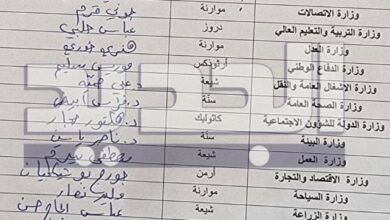 وزارة الاتصالات موارنة جوني قرم
وزارة التربية والتعليم العالي دروز عباس حلبي
وزارة العدل موارنة هنري خوري
وزارة الدفاع الوطني أرثوذكس موريس سليم
وزارة الاشغال العامة والنقل شيعة د. علي حمية
وزارة الصحة العامة سنة د. فراس ابيض
وزارة الدولة للشؤون الاجتماعية كاثوليك د. هكتور حجار
وزارة البيئة سنة د. ناصر ياسين
وزارة العمل شيعة مصطفى بيرم
وزارة الاقتصاد والتجارة أرمن جورج بوشكيان
وزارة السياحة موارنة وليد نصار
وزارة الزراعة شيعة عباس الحاج حسن